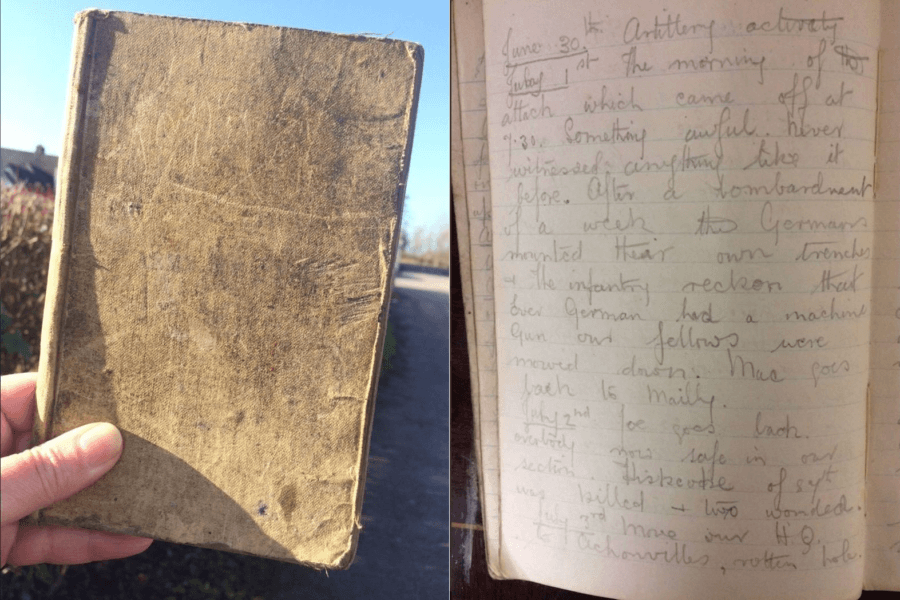 June 30.th Artillery activity
July 1st The morning of the
attack which came off at
7.30. Something awful. Never
witnessed anything like it
before. After a bombardment
of a week the Germans
mounted their own trenches
+ the infantry reckon that
ever German had a machine
Gun our fellows were
mowed down. Mac goes
back to Mailly.
July 2nd Joe goes back.
everybody now safe in our
section. of
was killed + two wonded.
July 3rd Move our H.Q.
to , rotten hole.